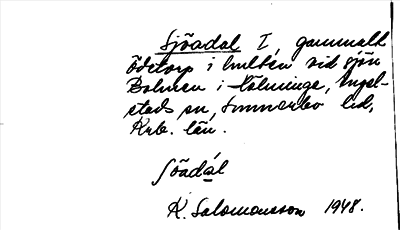 Sjöadal I, gammalt
ödetorp i hulten vid sjön
Bolmen i Tölminge, Ångel-
stads sn, Sunnerbo hd,
Krb. län.
ʃöadál
K. Salomonsson 1948.